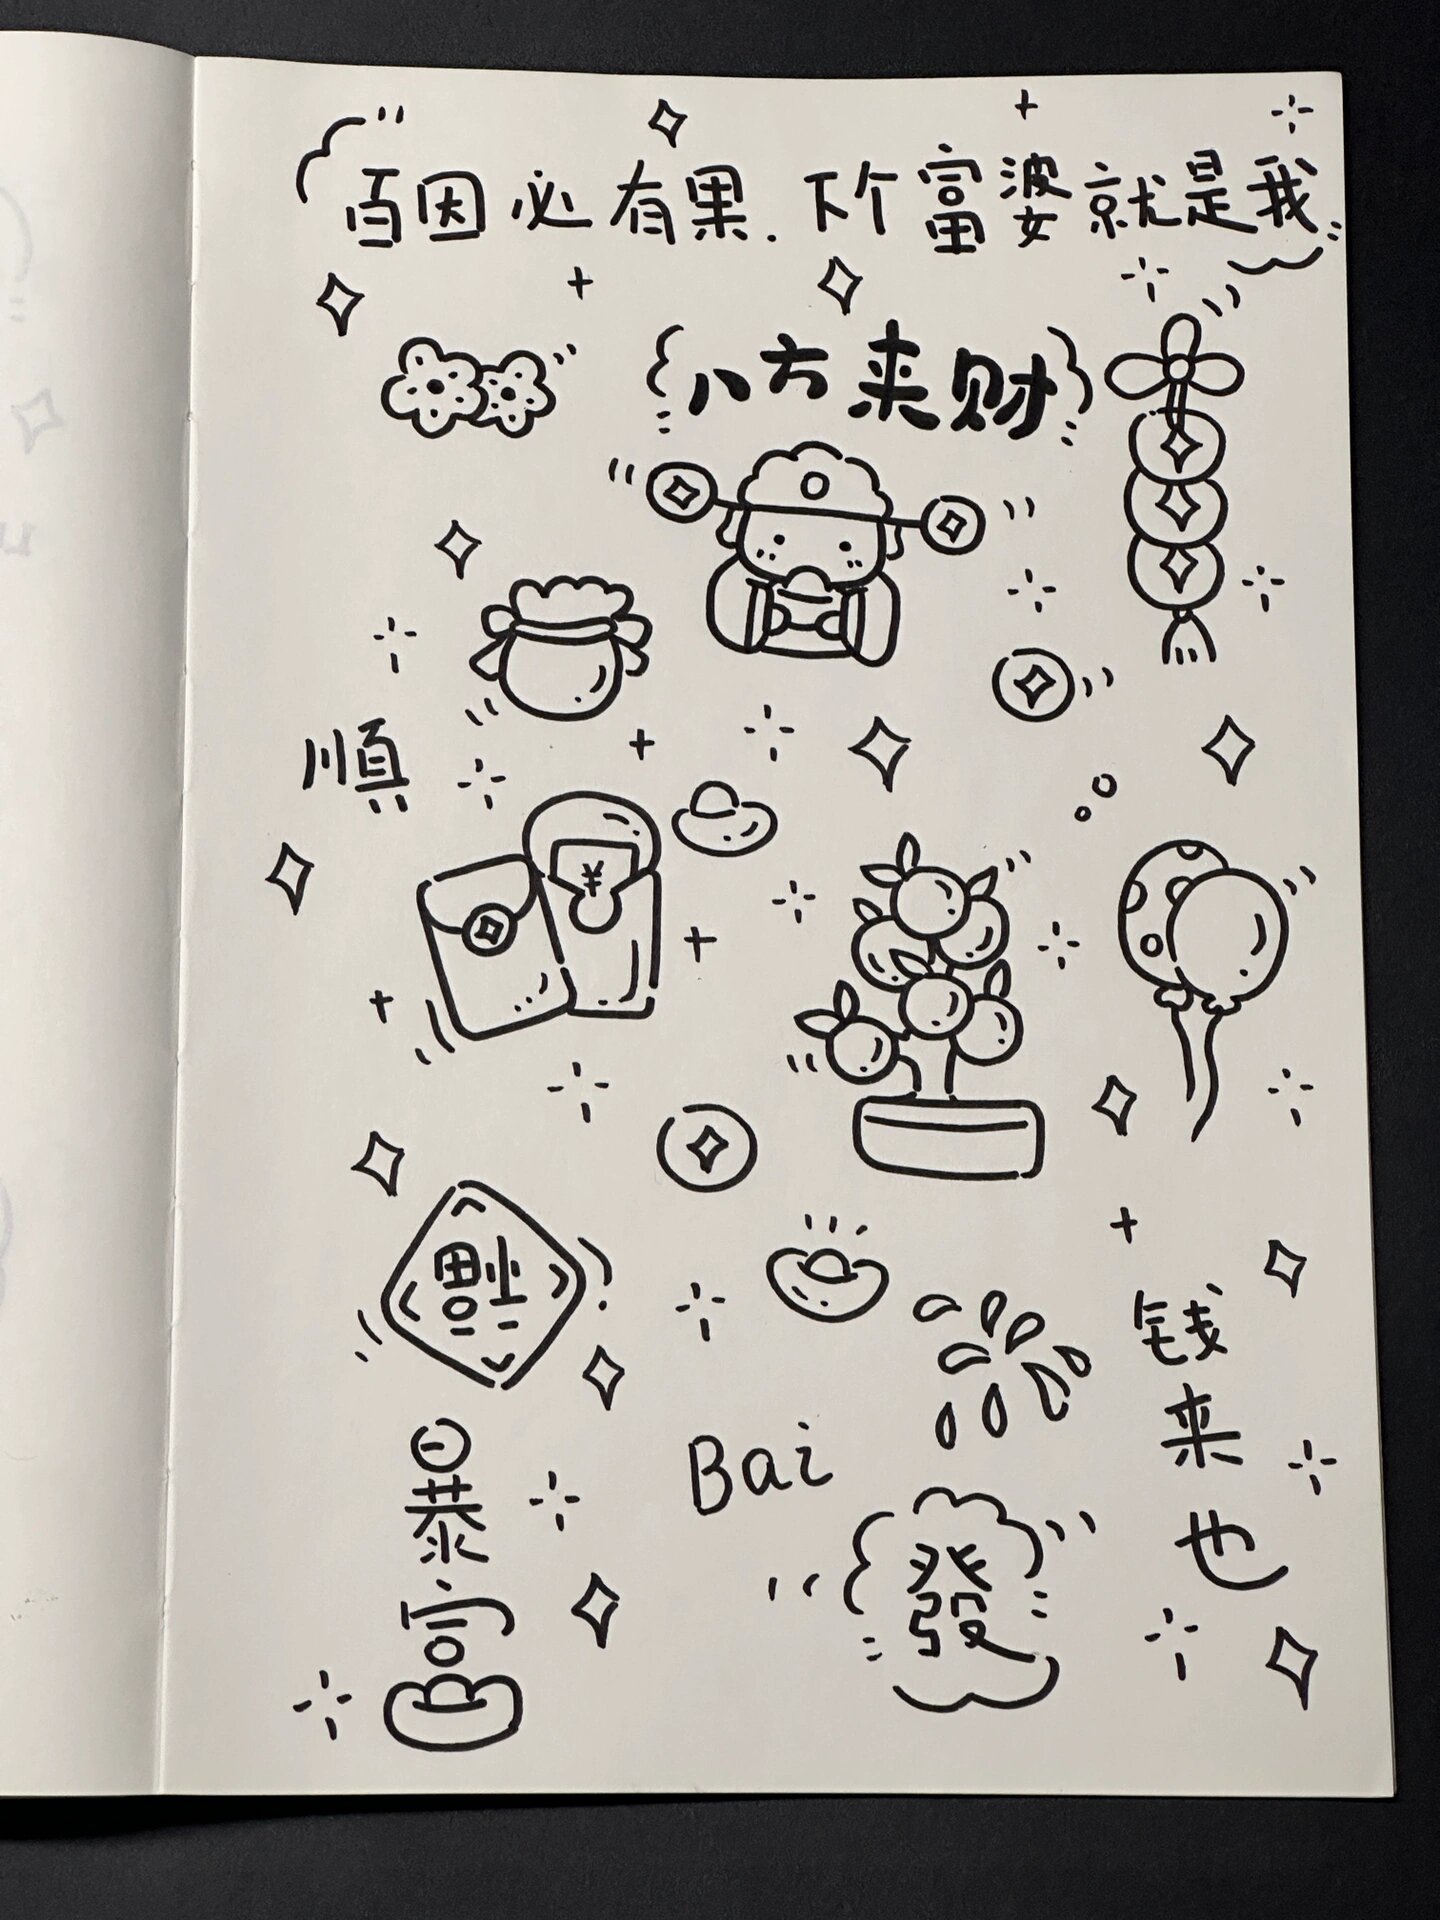 百因必有果.下个富婆就是我
八方来财
順
¥
福
钱来也
暴富
Bai
發